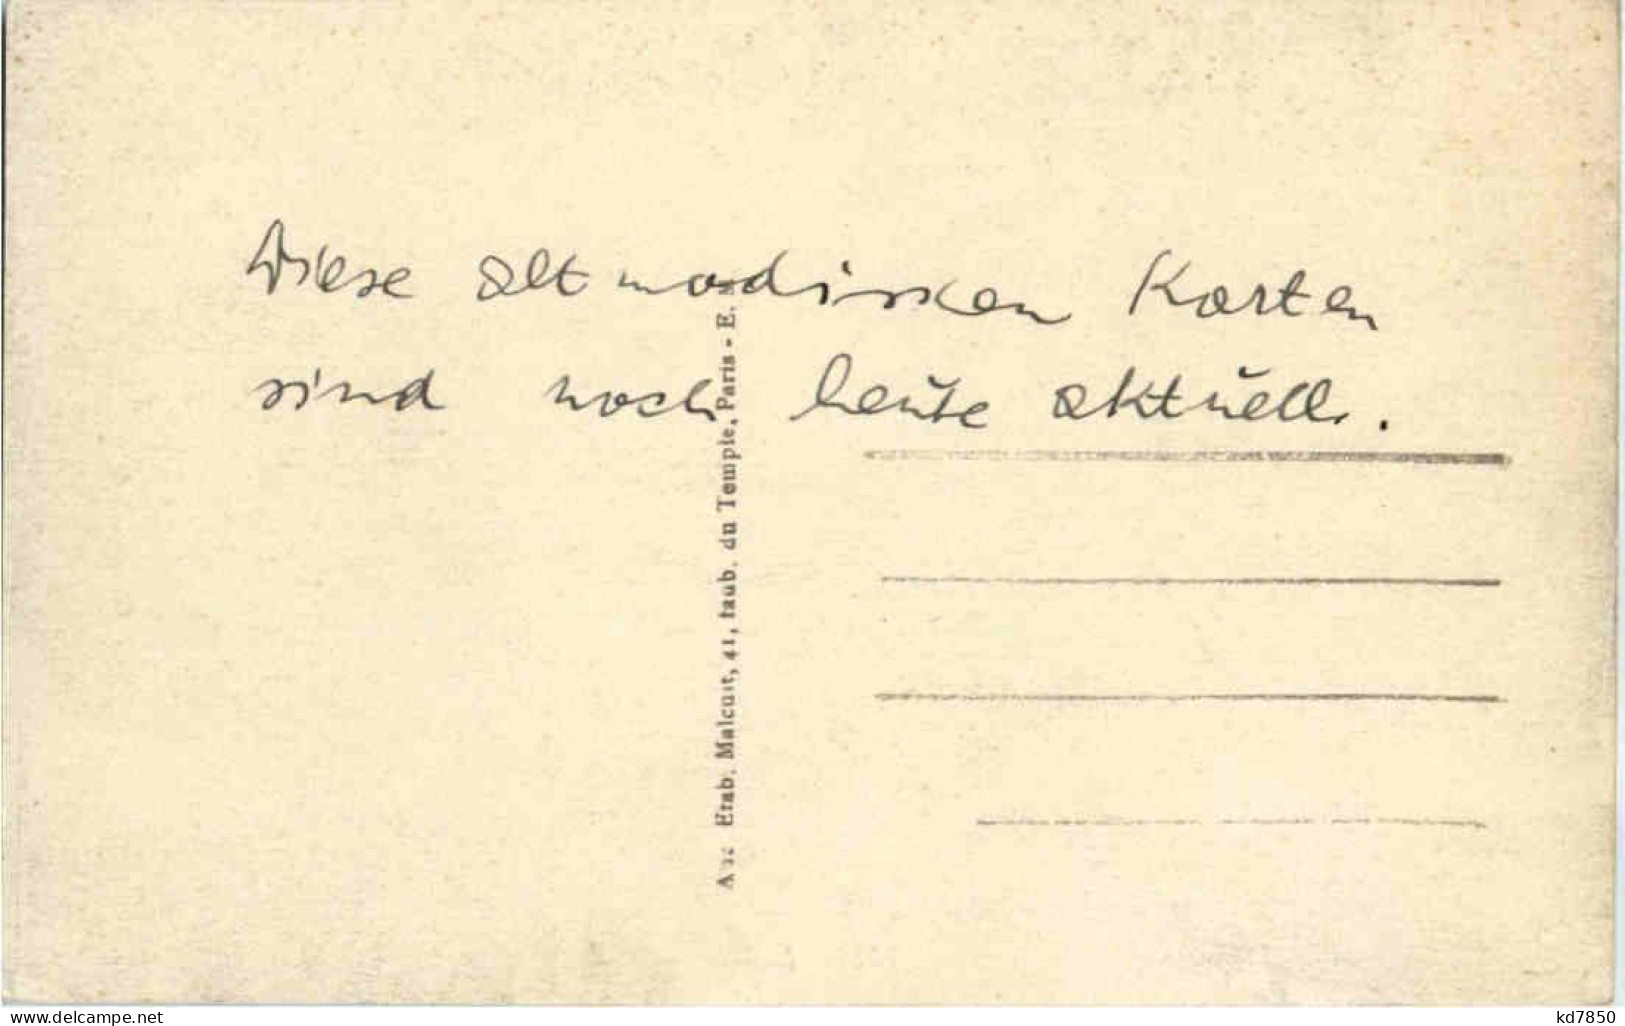 Diese altmodischen Karten
sind noch heute aktuell.
Etab. Malcuit, 41, faub. du Temple, Paris - E.
www.delcampe.net
kd7850